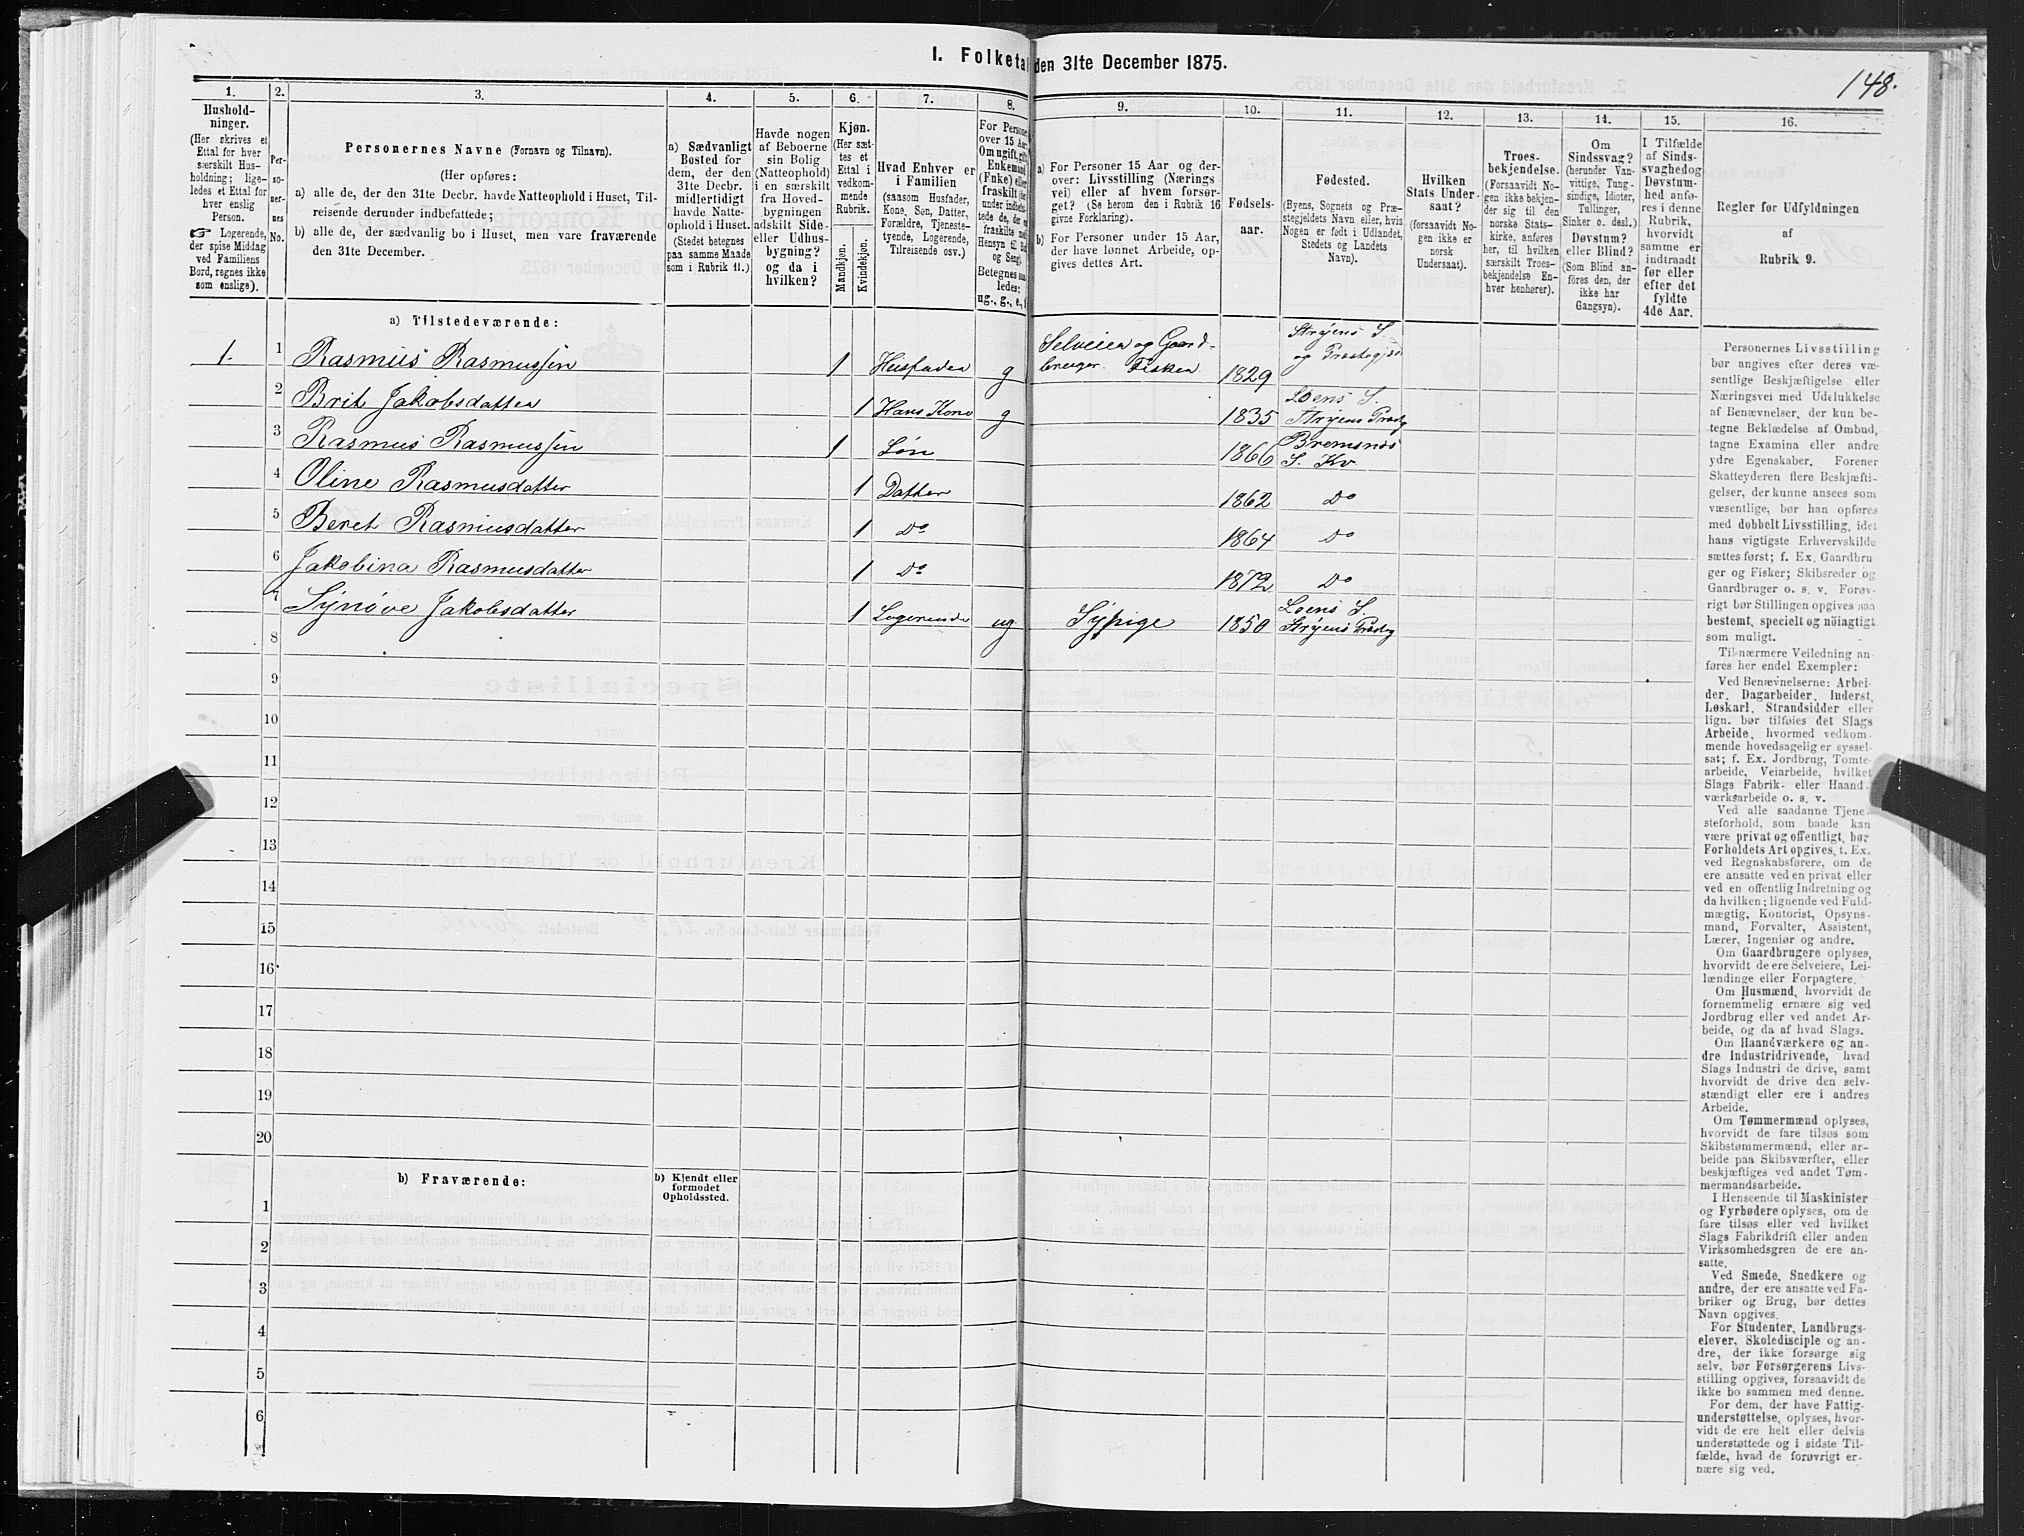 I. Folketal den 31te December 1875.
148.
1.
2.
3.
4.
5.
6.
7.
8.
9.
10.
11.
12.
13.
14.
15.
16.
Hushold-
ninger.
(Her skrives et
Ettal for hver
særskilt Hus-
holdning; lige-
ledes et Ettal for
hver enslig
Person.
☞ Logerende,
der spise Middag
ved Familiens
Bord, regnes ikke
som enslige).
Per-
so-
ner-
nes
No.
Personernes Navne (Fornavn og Tilnavn).
(Her opføres:
a) alle de, der den 31te Decbr. havde Natteophold i Huset, Til-
reisende derunder indbefattede;
b) alle de, der sædvanlig bo i Huset, men vare fraværende
den 31te December.
a) Sædvanligt
Bosted for
dem, der den
31te Decbr.
midlertidigt
havde Natte-
ophold i Huset.
(Stedet betegnes
paa samme Maade
som i Rubrik 11.)
Havde nogen
af Beboerne
sin Bolig
(Natteophold)
i en særskilt
fra Hoved-
bygningen
adskilt Side-
eller Udhus-
bygning?
og da i
hvilken?
Kjøn.
(Her sæt-
tes et
Ettal i
vedkom-
mende
Rubrik.
Mandkjøn.
Kvindekjøn.
Hvad Enhver er
i Familien
(saasom Husfader,
Kone, Søn, Datter,
Forældre, Tjeneste-
tyende, Logerende,
Tilreisende osv.)
For Persone
over 15 Aar
Om ugift, gift
Enkemand
(Enke) eller
fraskilt
Betegnes saa
ledes:
ug., g., e., f
a) For Personer 15 Aar og der-
over: Livsstilling (Nærings
vei) eller af hvem forsør-
get? (Se herom den i Rubrik 16
givne Forklaring).
b) For Personer under 15 Aar,
der have lønnet Arbeide, op-
gives dettes Art.
Fødsels-
aar.
Fødested.
(Byens, Sognets og Præ-
stegjeldets Navn eller, hvis
Nogen er født i Udlandet,
Stedets og Landets
Navn).
Hvilken
Stats Under-
saat?
(forsaavidt No-
gen ikke er
norsk
Undersaat).
Troes-
bekjendelse.
(Forsaavidt No-
gen ikke bekjen-
der sig til den
norske Stats-
kirke, anføres
her, til hvilken
særskilt Troes-
bekjendelse En-
hver henhører).
Om
Sindssvag?
(herunder Van-
vittige, Tung-
sindige, Idioter,
Tullinger,
Sinker o. desl.)
Døvstum?
eller Blind?
(Som Blind an-
føres den, der
ikke har
Gangsyn).
I Tilfælde
af Sinds-
svaghedog
Døvstum-
hed anfø-
res i denne
Rubrik,
hvorvidt
samme er
indtraadt
før eller
efter det
fyldte
4de Aar.
Regler for Udfyldningen
af
Rubrik 9.
a) Tilstedeværende:
1. 1 Rasmus Rasmussen 1 Husfader g Selveier og Gaard-
bruger. Fisker 1829 Stryens S.
og Præstegjeld
2 Brit Jakobsdatter 1 Hans Kone g 1835 Loens S.
Stryens Præstg
3 Rasmus Rasmussen 1 Søn 1866 Bremsnes
S. Kv
4 Oline Rasmusdatter 1 Datter 1862 Do
5 Beret Rasmusdatter 1 Do 1864 Do
6 Jakobina Rasmusdatter 1 Do 1872 Do
7 Synøve Jakobsdatter 1 Logerende ug Sypige 1850 Loens S.
Stryens Præstg
8
9
10
11
12
13
14
15
16
17
18
19
20
b) Fraværende:
b) Kjendt eller
formodet
Opholdssted.
1
2
3
4
5
6
Personernes Livsstilling
bør angives efter deres væ-
sentlige Beskjæftigelse eller
Næringsvei med Udelukkelse
af Benævnelser, der kun be-
tegne Beklædelse af Ombud,
tagne Examina eller andre
ydre Egenskaber. Forener
Skatteyderen flere Beskjæfti-
gelser, der kunne ansees som
væsentlige, bør han opføres
med dobbelt Livsstilling, idet
hans vigtigste Erhvervskilde
sættes først; f. Ex. Gaardbru-
ger og Fisker; Skibsreder og
Gaardbruger o. s. v. Forøv-
rigt bør Stillingen opgives saa
bestemt, specielt og nöiagtigt
som muligt.
Til nærmere Veiledning an-
føres her endel Exempler:
Ved Benævnelserne: Arbei-
der, Dagarbeider, Inderst,
Løskarl, Strandsidder eller
lign. bør tilføies det Slags
Arbeide, hvormed vedkom-
mende hovedsagelig er syssel-
sat; f. Ex. Jordbrug, Tomte-
arbeide, Veiarbeide, hvilket
Slags Fabrik- eller Haand-
værksarbeide o. s. v.
Ved alle saadanne Tjene-
steforhold, som baade kan
være privat og offentligt, bør
Forholdets Art opgives, t. Ex.
ved Regnskabsførere, om de
ere ansatte ved en privat eller
ved en offentlig Indretning og
da hvilken; lignende ved Fuld-
mægtig, Kontorist, Opsyns-
mand, Forvalter, Assistent,
Lærer, Ingeniør og andre.
Om Gaardbrugere oplyses,
hvorvidt de ere Selveiere, Lei-
lændinge eller Forpagtere.
Om Husmænd, hvorvidt de
fornemmelig ernære sig ved
Jordbrug eller ved andet Ar-
beide, og da af hvad Slags.
Om Haandværkere og an-
dre Industridrivende, hvad
Slags Industri de drive, samt
hvorvidt de drive den selv-
stændigt eller ere i andres
Arbeide.
Om Tømmermænd oplyses,
hvorvidt de fare tilsøs som
Skibstømmermænd, eller ar-
beide paa Skibsværfter, eller
beskjæftiges ved andet Tøm-
mermandsarbeide.
I Henseende til Maskinister
og Fyrbødere oplyses, om de
fare tilsøs eller ved hvilket
Slags Fabrikdrift eller anden
Virksomhedsgren de ere an-
satte.
Ved Smede, Snedkere og
andre, der ere ansatte ved Fa-
briker og Brug, bør dettes
Navn opgives.
For Studenter, Landbrugs-
elever, Skoledisciple og an-
dre, der ikke forsørge sig
selv, bør Forsørgerens Livs-
stilling opgives, forsaavidt de
ikke bo sammen med denne.
For dem, der have Fattig-
understøttelse, oplyses, hvor-
vidt de ere helt eller delvis
understøttede og i sidste Til-
fælde, hvad de forøvrigt er-
nære sig ved.